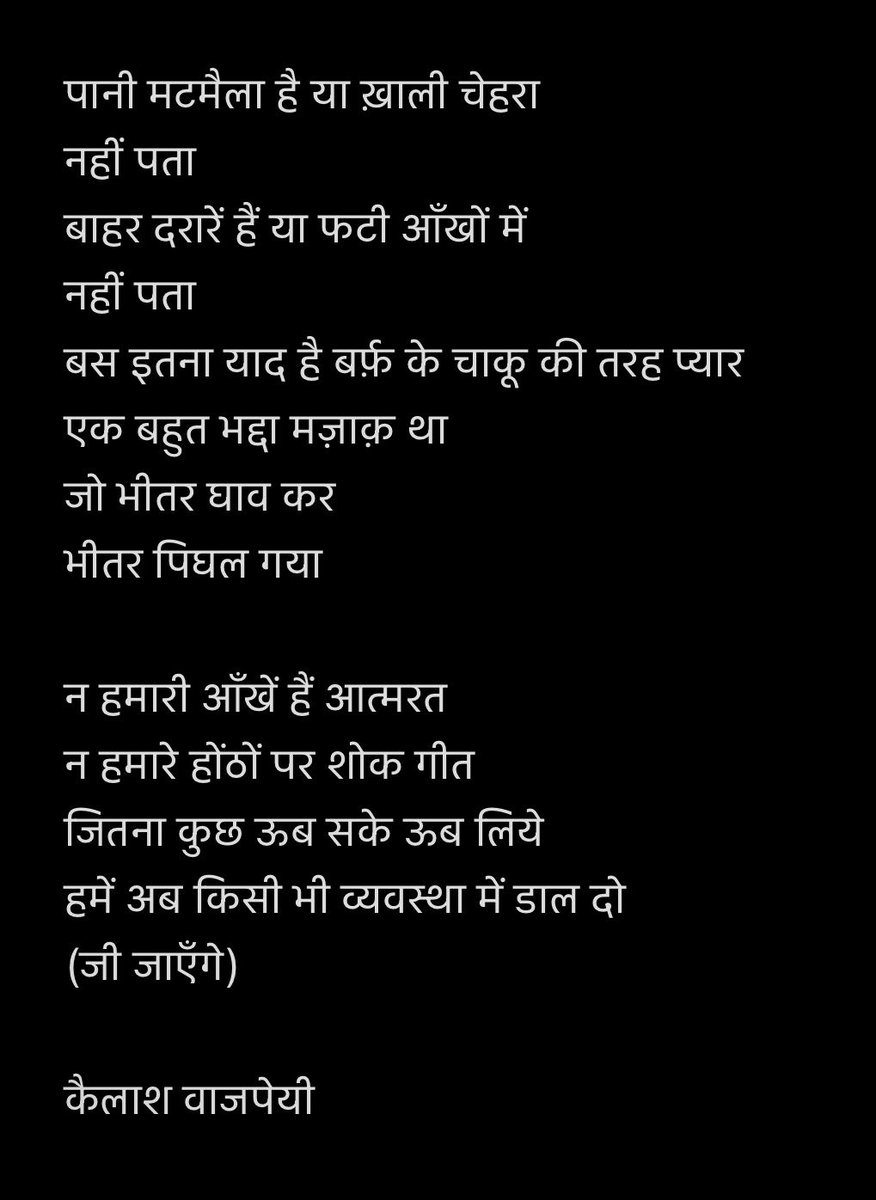 पानी मटमैला है या ख़ाली चेहरा
नहीं पता
बाहर दरारें हैं या फटी आँखों में
नहीं पता
बस इतना याद है बर्फ़ के चाकू की तरह प्यार
एक बहुत भद्दा मज़ाक़ था
जो भीतर घाव कर
भीतर पिघल गया
न हमारी आँखें हैं आत्मरत
न हमारे होंठों पर शोक गीत
जितना कुछ ऊब सके ऊब लिये
हमें अब किसी भी व्यवस्था में डाल दो
(जी जाएँगे)
कैलाश वाजपेयी